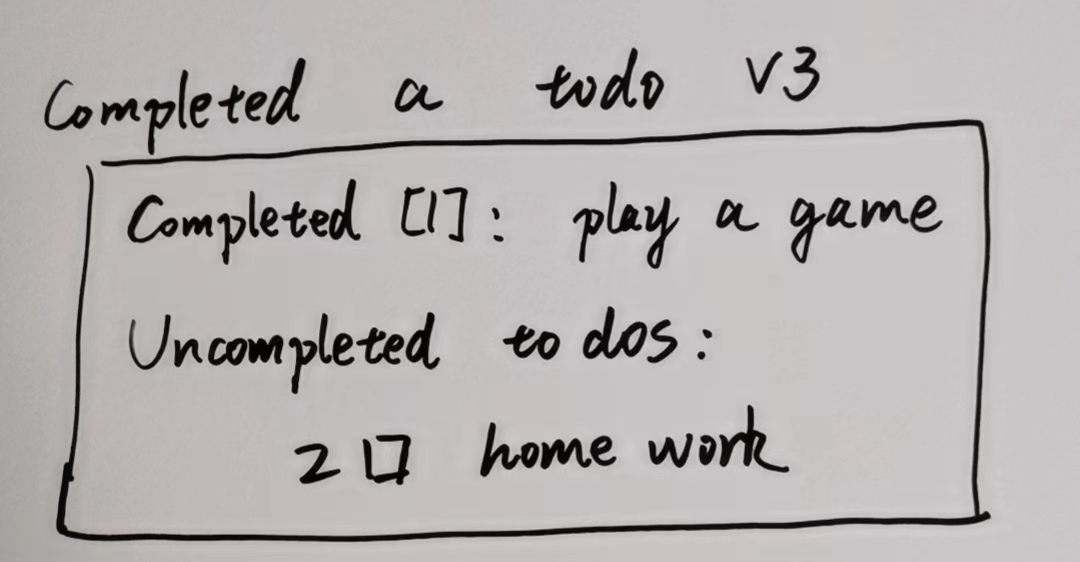 Completed a todo v3
Completed [1]: play a game
Uncompleted to dos:
2 [] home work